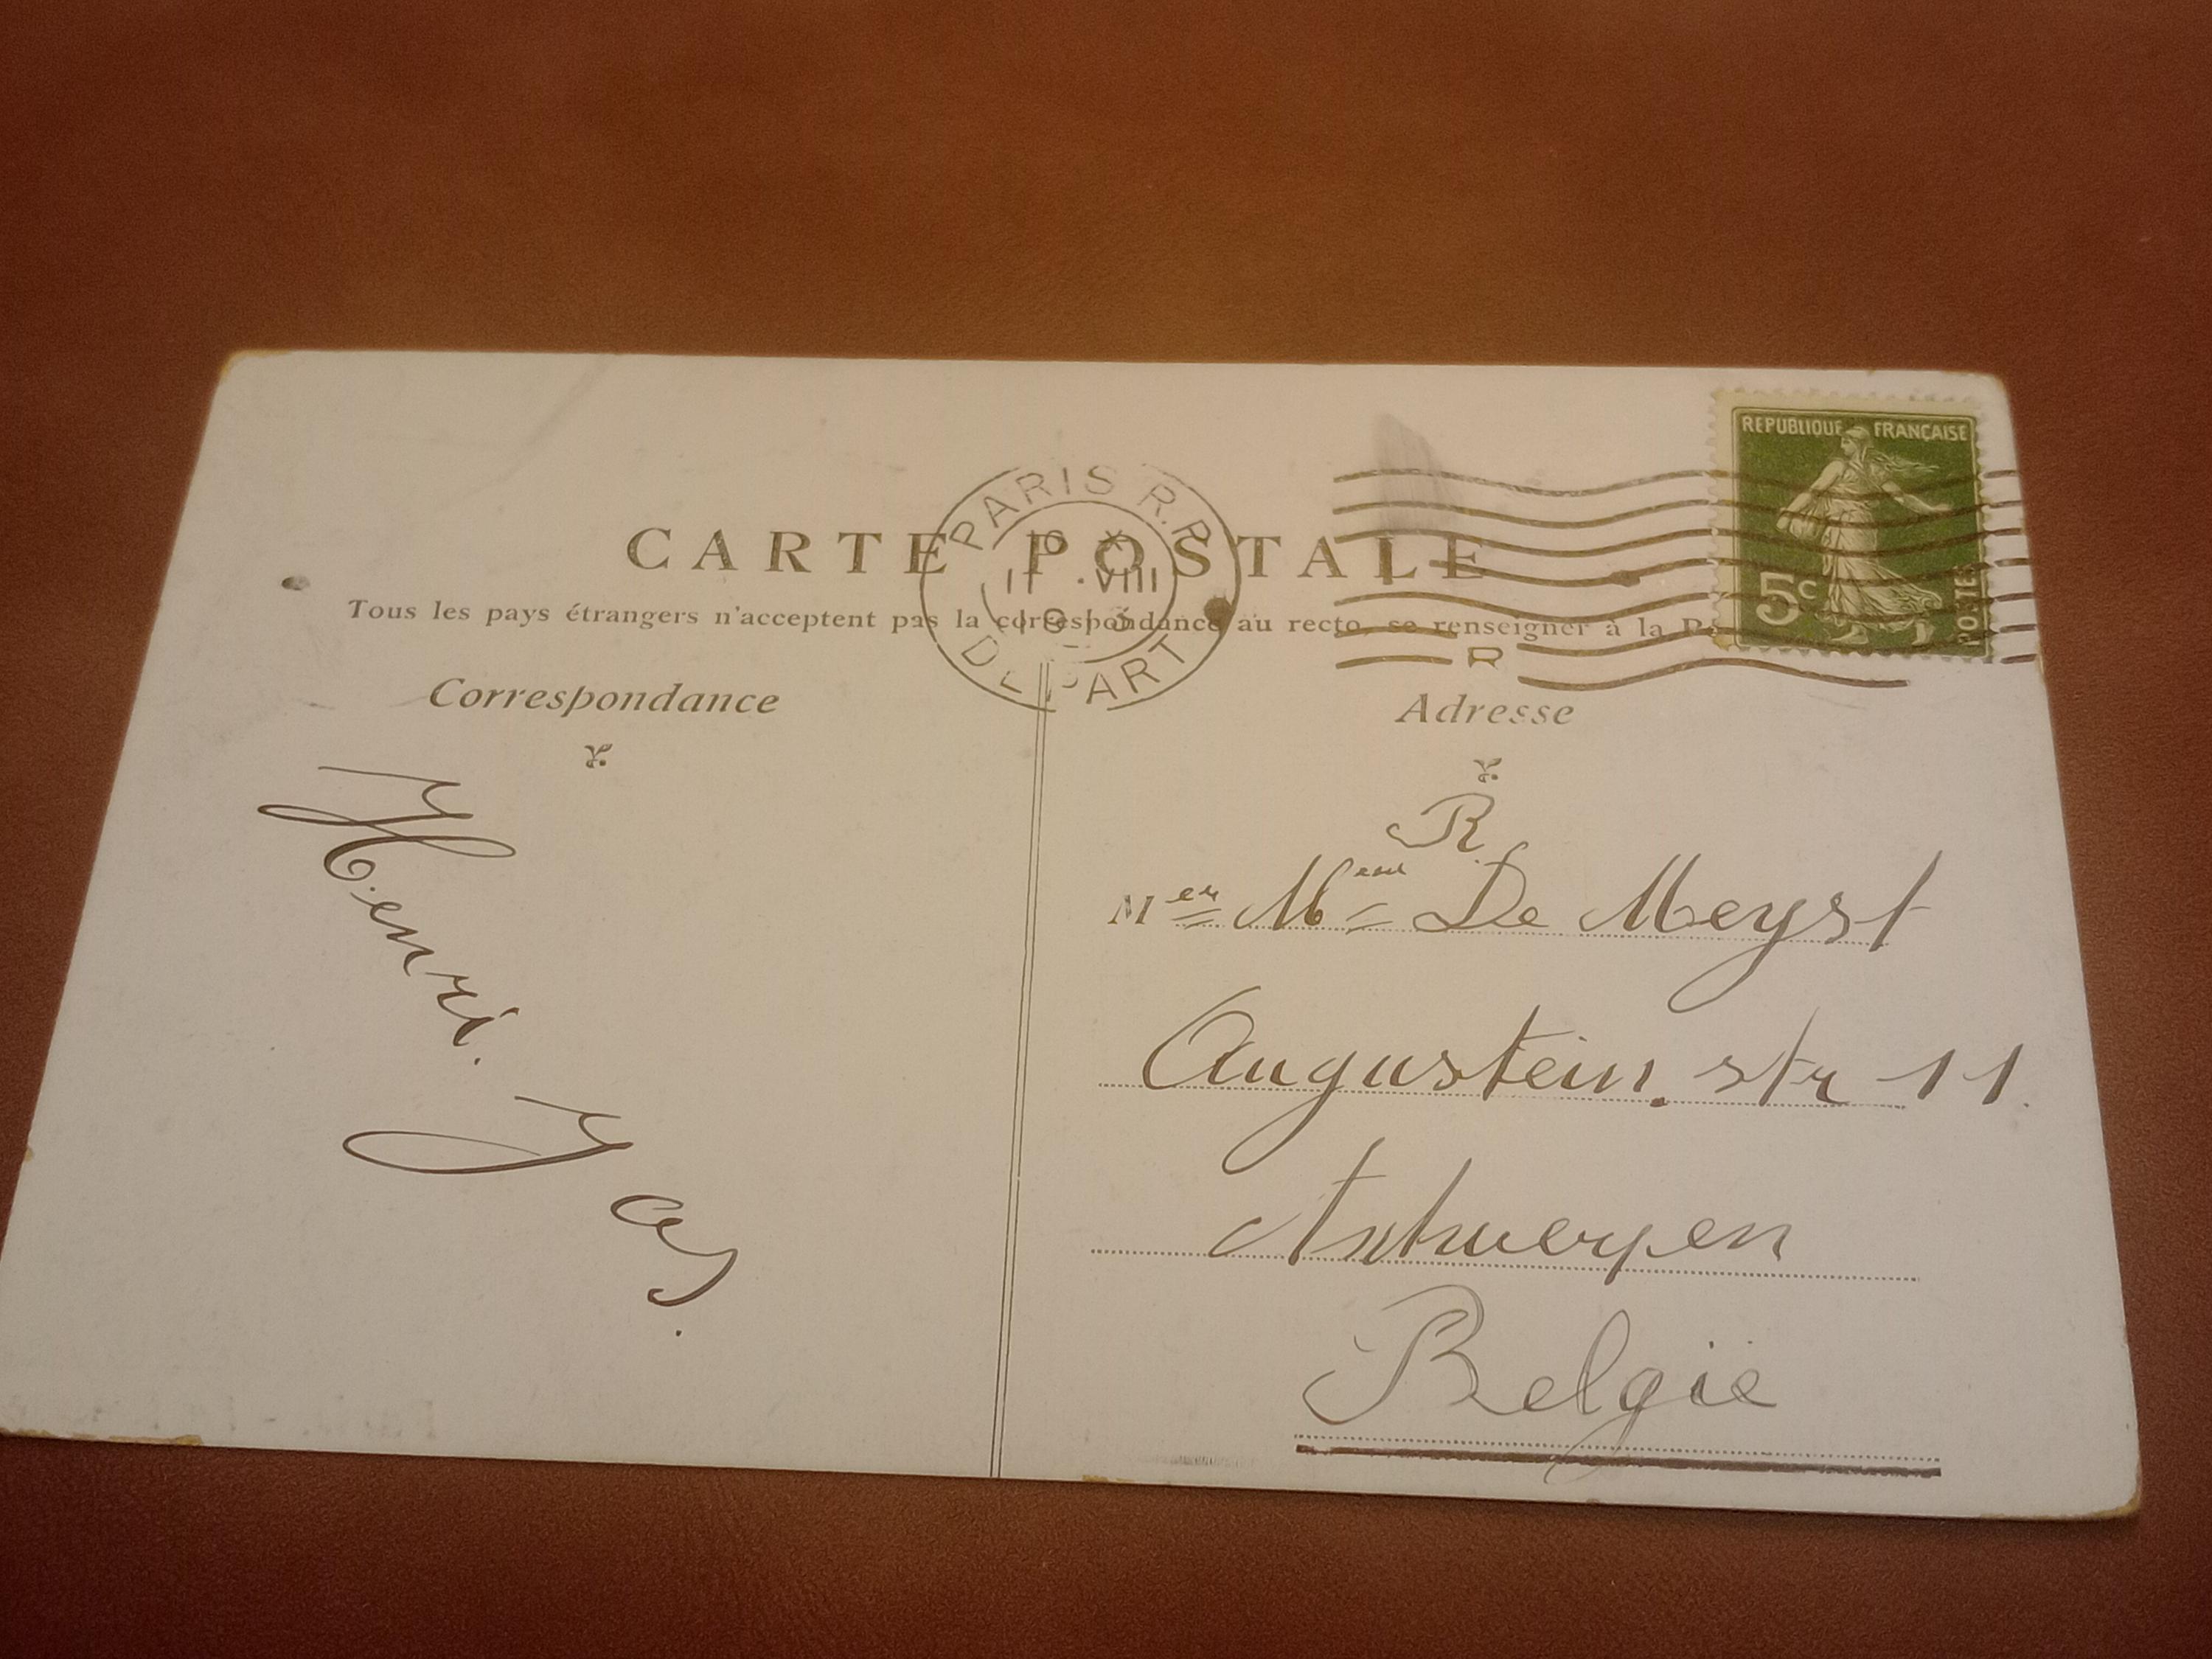 REPUBLIQUE FRANÇAISE
5c
POSTES
PARIS R.P
DEPART
VIII
CARTE POSTALE
Tous les pays étrangers n'acceptent pas la correspondance au recto, se renseigner à la
R
Correspondance
Adresse
Henri. Jas.
R.
Mer Meme De Meyst
Augustein. str 11.
Antwerpen
Belgie